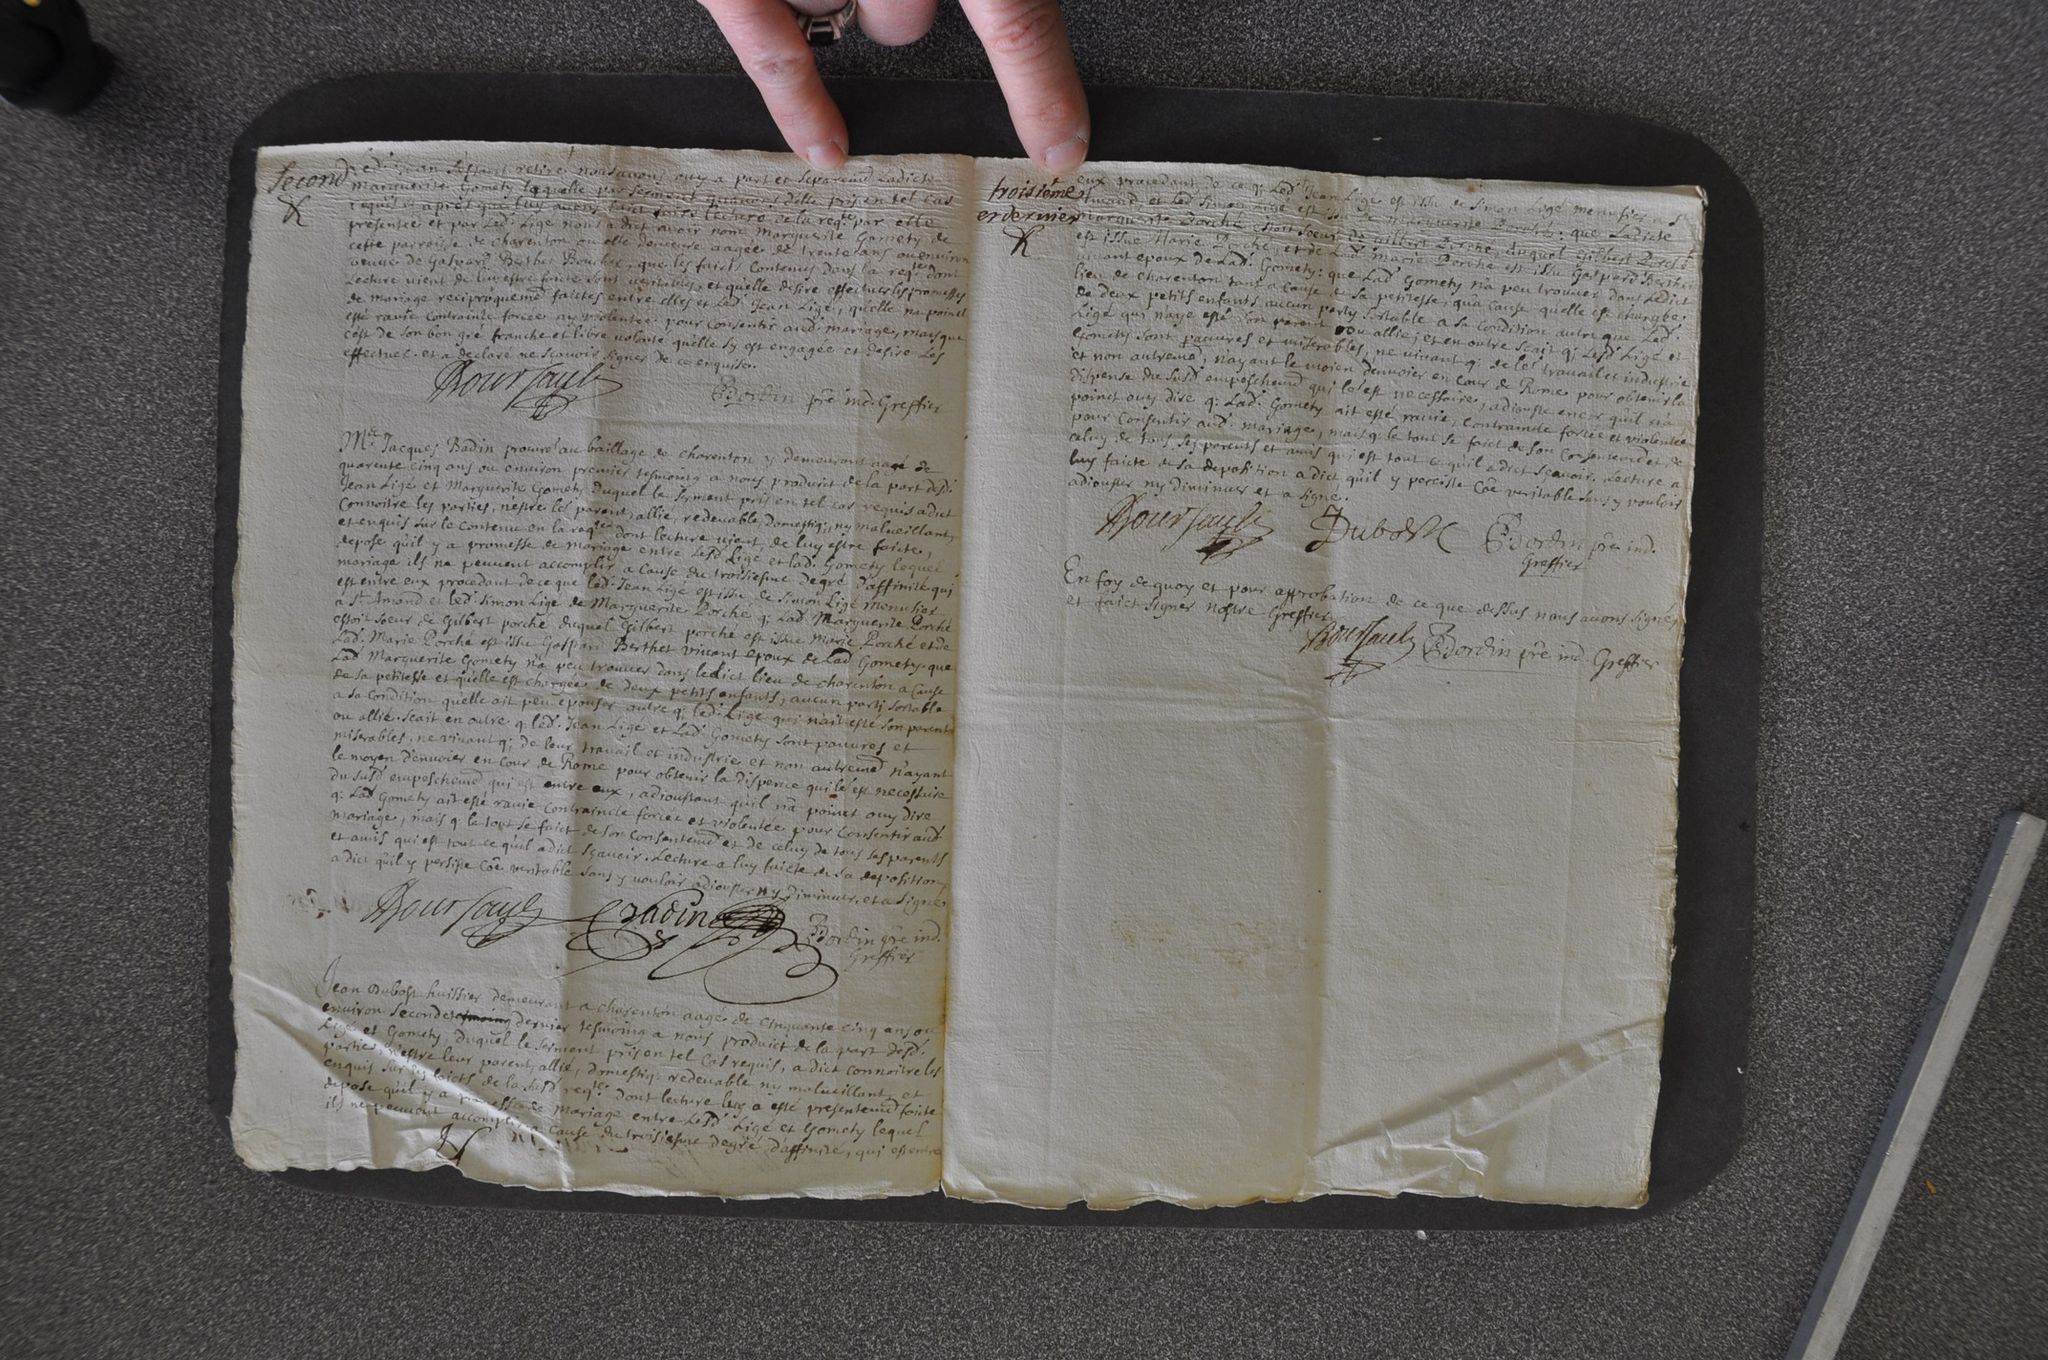 second
led. Jean s'estant retiré nous avons ouy a part et separemt ladicte
Marguerite Gomety laquelle par serment quavons delle pris en tel cas
requis et apres que luy avons faict faire lecture de la reqte par elle
presentée et par led. Ligé nous a dict avoir nom Marguerite Gomety de
cette parroisse de charenton ou elle demeure aagée de trente ans ou environ
veuve de Gaspard Berthet Boucher, que les faicts contenus dans la reqte dont
lecture vient de luy estre faicte sont veritables, et quelle desire effectuer les promesses
de mariage reciproquemt faictes entre elles et led. Jean Ligé, quelle na point
esté ravie contrainte forcée ny violentée pour consentir aud. mariage, mais que
cest de son bon gré franche et libre volonté quelle sy est engagée et desire les
effectuer. et a declaré ne sçavoir signer de ce enquise.
Boursault
Bordin pre ind. Greffier
Me Jacques Badin procureur au bailliage de charenton y demeurant aagé de
quarente cinq ans ou environ premier tesmoing a nous produict de la part desd.
Jean Ligé et Marguerite Gomety duquel le serment pris en tel cas requis a dict
Connoitre les parties, nestre les parent, allié, redevable, domestiq; ny malveillant,
et enquis sur le contenu en la reqte dont lecture vient de luy estre faicte,
depose quil y a promesse de mariage entre lesd. Ligé et lad. Gomety lequel
mariage ils ne peuvent accomplir a cause du troisiesme degré daffinité qui
est entre eux procedant de ce que led. Jean Ligé est issu de Simon Ligé menusier
a St Amand et led. Simon Ligé de Marguerite Porché q; lad. Marguerite Porché
estoit soeur de Gilbert porché duquel Gilbert porché est issue Marie Porché et de
Lad. Marie Porché est issu Gaspard Berthet vivant epoux de Lad. Gomety. que
Lad. Marguerite Gomety n'a peu trouver dans ledict lieu de charenton a cause
de sa petitesse et quelle est chargée de deux petits enfants, aucun parti sortable
a sa condition quelle ait peu epouser autre q; led. Ligé qui n'ait esté son parent
ou allié. scait en outre q; led. Jean Ligé et Lad. Gomety sont pauvres et
miserables, ne vivant q; de leur travail et industrie et non autremt n'ayant
le moyen denvoier en cour de Rome pour obtenir la dispence qui lé est necessaire
du susd. empeschemt qui est entre eux, adjoustant quil n'a point ouy dire
q; Lad. Gomety ait esté ravie contrainte forcée et violentée pour consentir aud.
mariage, mais q; le tout se faict de son consentemt et de celuy de tous ses parents
et amis qui est tout ce quil a dict sçavoir. Lecture a luy faicte de sa deposition
a dict quil y persiste coe veritable sans y vouloir adjouster ny diminuer et a signé
Boursault
Badin
Bordin pre ind.
Greffier
Jean Dubost huissier demeurant a charenton aagé de cinquante cinq ans ou
environ second et dernier tesmoing a nous produict de la part desd.
Ligé et Gomety, duquel le serment pris en tel cas requis, a dict connoitre les
parties, n'estre leur parent, allié, domestiq; redevable ny malveillant, et
enquis sur les faicts de la susd. reqte dont lecture luy a esté presentemt faicte
depose quil y a promesse de mariage entre lesd. Ligé et Gomety lequel
ils ne peuvent accomplir a cause du troisiesme degré daffinité, qui est entre
troisième
et dernier
eux procedant de ce q; led. Jean Ligé est issu de Simon Ligé menusier a St
Amand et led. Simon Ligé est issu de Marguerite Porché: que Ladicte
Marguerite Porché estoit soeur de Gilbert Porché duquel Gilbert Porché
est issue Marie Porché, et de Lad. Marie Porché est issu Gaspard Berthet
vivant epoux de Lad. Gomety: que Lad. Gomety n'a peu trouver dans Ledict
lieu de charenton tant a cause de sa petitesse, qu'a cause quelle est chargée
de deux petits enfants aucun party sortable a sa condition autre que Led.
Ligé qui naye esté son parent ou allié, et en outre scait q; lesd. Ligé et
Gomety sont pauvres et miserables, ne vivant q; de leur travail et industrie
et non autremt, n'ayant le moyen denvoier en cour de Rome pour obtenir la
dispense du susd. empeschemt qui les est necessaire, adjouste encor quil na
point ouy dire q; Lad. Gomety ait esté ravie, contrainte forcée et violentée
pour consentir aud. mariage, mais q; le tout se faict de son consentemt et de
celuy de tous ses parents et amis qui est tout ce quil a dict sçavoir. Lecture a
luy faicte de sa deposition a dict quil y persiste coe veritable sans y vouloir
adjouster ny diminuer et a signé.
Boursault
Dubost
Bordin pre ind.
Greffier
En foy de quoy et pour approbation de ce que dessus nous avons signé
et faict signer nostre Greffier
Boursault
Bordin pre ind. Greffier